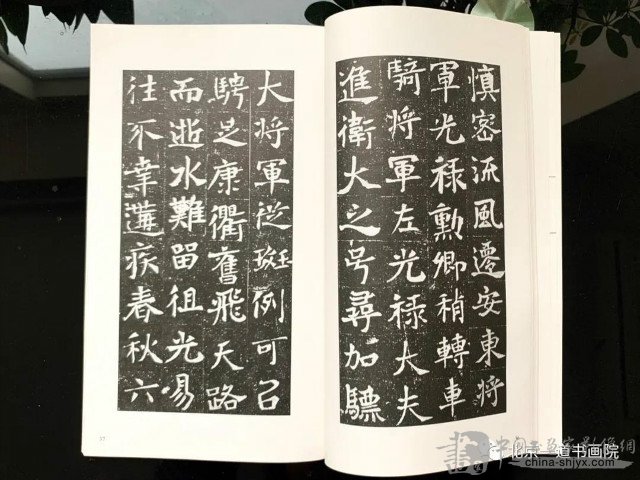 慎密流風遷安東將
軍光祿勳卿稍轉車
騎將軍左光祿大夫
進衛大之号尋加驃
大將軍從班例可㠯
騁足康衢奮飛天路
而逝水難留徂光易
往不幸遘疾春秋六
北京一道书画院
china-shjyx.com